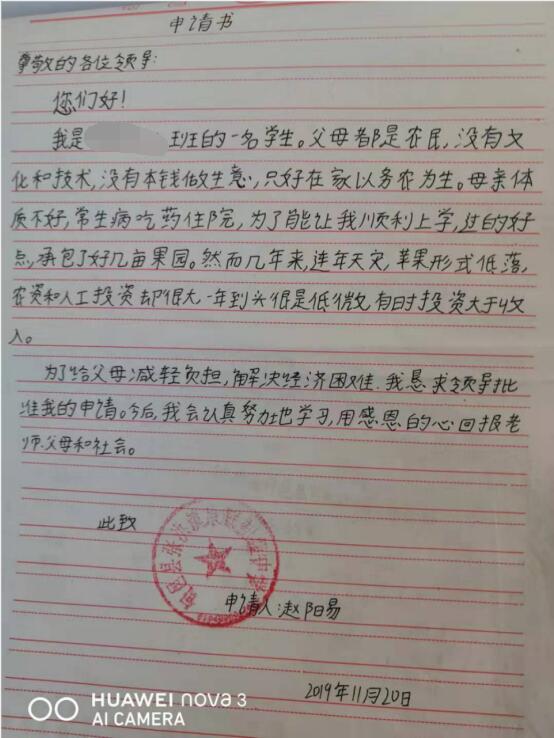 申请书
尊敬的各位领导:
您们好!
我是 班的一名学生。父母都是农民,没有文
化和技术,没有本钱做生意,只好在家以务农为生。母亲体
质不好,常生病吃药住院,为了能让我顺利上学,过的好
点,承包了好几亩果园。然而几年来,连年天灾,苹果形式低落,
农资和人工投资却很大,一年到头很是低微,有时投资大于收
入。
为了给父母减轻负担,解决经济困难,我恳求领导批
准我的申请。今后,我会认真努力地学习,用感恩的心回报老
师父母和社会。
此致
申请人:赵阳易
2019年11月20日
HUAWEI nova 3
AI CAMERA